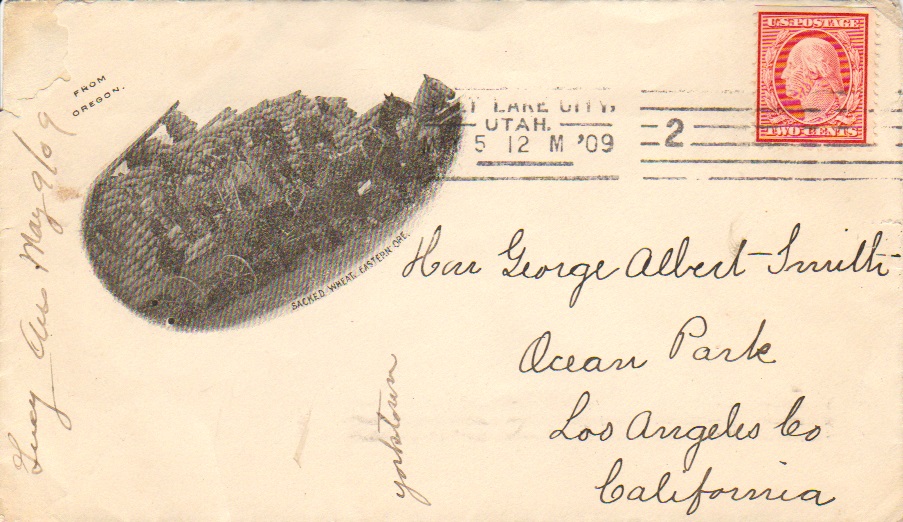 FROM
OREGON.
SACKED WHEAT, EASTERN ORE.
LAKE CITY,
UTAH.
5 12 M '09
2
U.S. POSTAGE
TWO CENTS
Hon George Albert Smith
Ocean Park
Los Angeles Co
California
Yorktown
Lucy Ans May 9/09